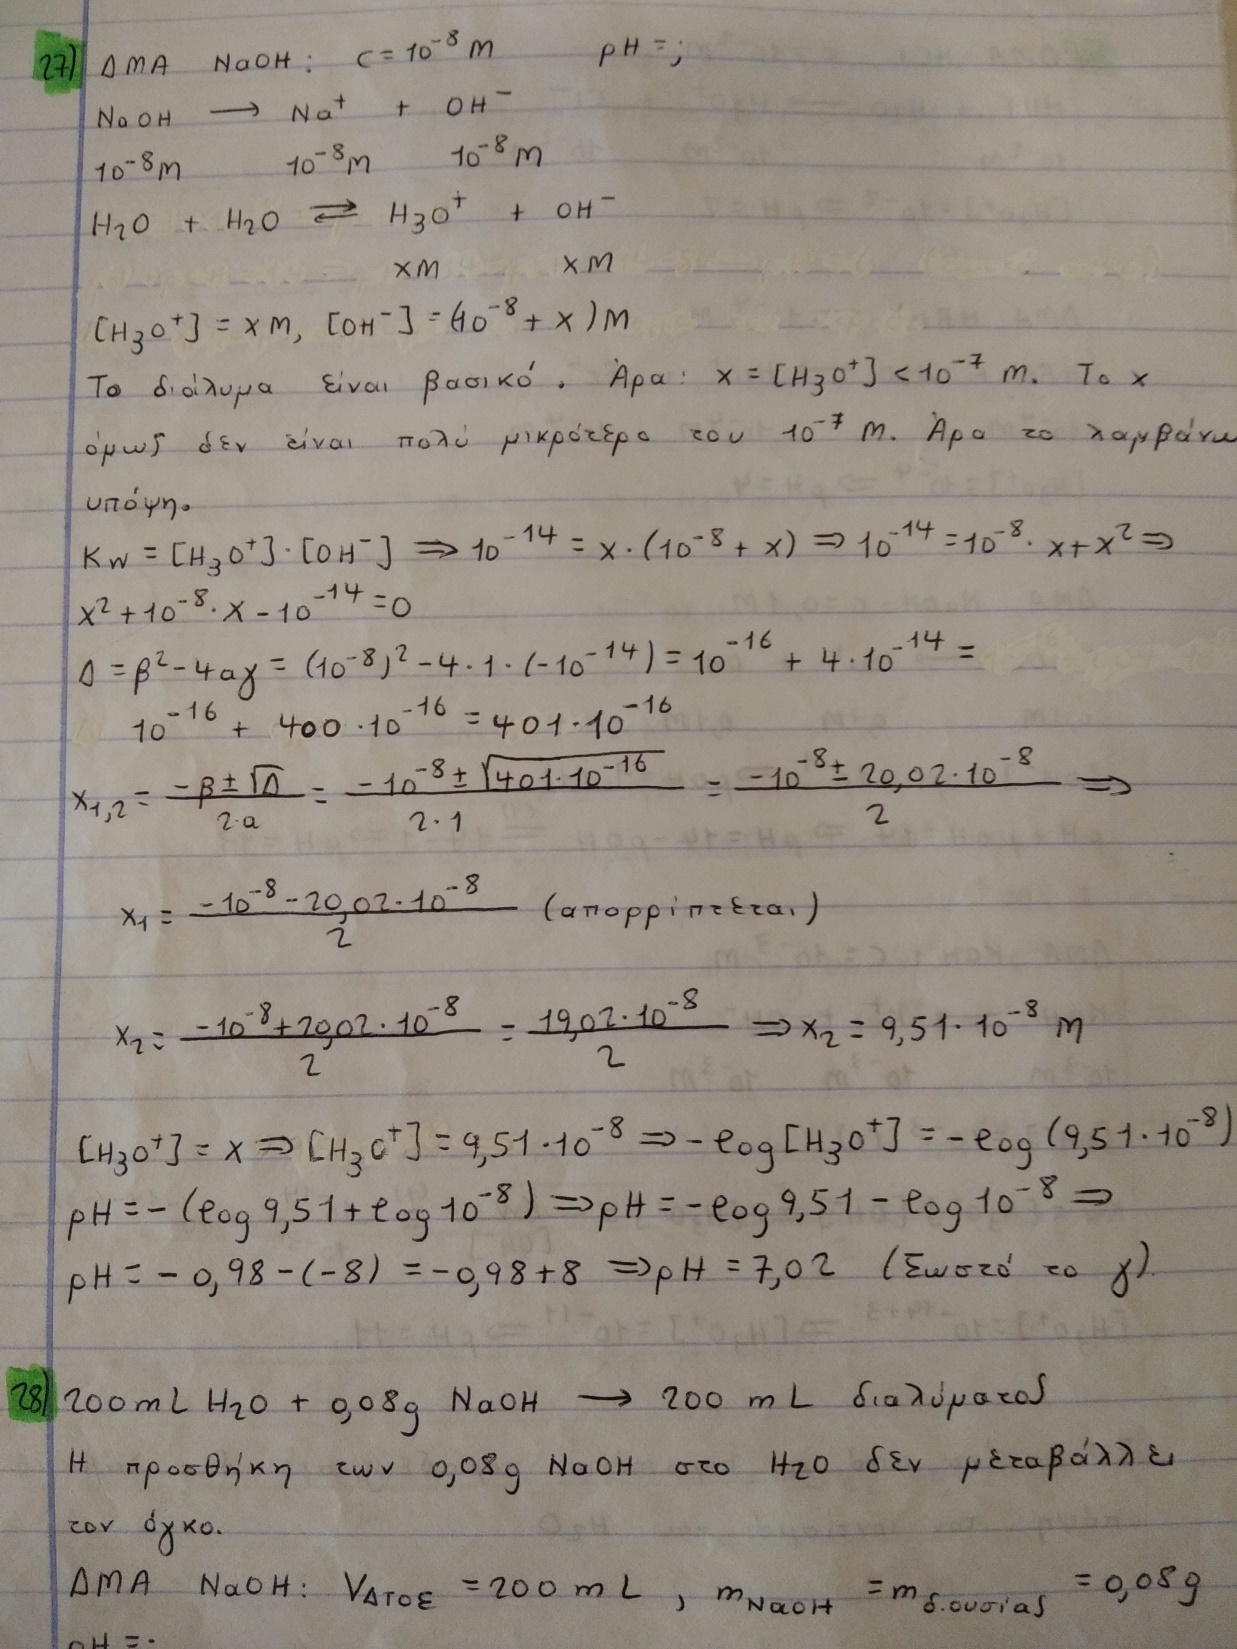 27) ΔΜΑ NaOH: C = 10⁻⁸ M pH = ;
NaOH → Na⁺ + OH⁻
10⁻⁸M 10⁻⁸M 10⁻⁸M
H₂O + H₂O ⇌ H₃O⁺ + OH⁻
xM xM
[H₃O⁺] = xM, [OH⁻] = (10⁻⁸ + x)M
Το διάλυμα είναι βασικό. Άρα: x = [H₃O⁺] < 10⁻⁷ M. Το x
όμως δεν είναι πολύ μικρότερο του 10⁻⁷ M. Άρα το λαμβάνω
υπόψη.
Kw = [H₃O⁺]·[OH⁻] ⇒ 10⁻¹⁴ = x·(10⁻⁸ + x) ⇒ 10⁻¹⁴ = 10⁻⁸·x + x² ⇒
x² + 10⁻⁸·x - 10⁻¹⁴ = 0
Δ = β² - 4αγ = (10⁻⁸)² - 4·1·(-10⁻¹⁴) = 10⁻¹⁶ + 4·10⁻¹⁴ =
10⁻¹⁶ + 400·10⁻¹⁶ = 401·10⁻¹⁶
x₁,₂ = (-β ± √Δ)/(2·α) = (-10⁻⁸ ± √(401·10⁻¹⁶))/(2·1) = (-10⁻⁸ ± 20,02·10⁻⁸)/2 ⇒
x₁ = (-10⁻⁸ - 20,02·10⁻⁸)/2 (απορρίπτεται)
x₂ = (-10⁻⁸ + 20,02·10⁻⁸)/2 = (19,02·10⁻⁸)/2 ⇒ x₂ = 9,51·10⁻⁸ M
[H₃O⁺] = x ⇒ [H₃O⁺] = 9,51·10⁻⁸ ⇒ -log[H₃O⁺] = -log(9,51·10⁻⁸)
pH = -(log9,51 + log10⁻⁸) ⇒ pH = -log9,51 - log10⁻⁸ ⇒
pH = -0,98 - (-8) = -0,98 + 8 ⇒ pH = 7,02 (Σωστό το γ).
28) 200mL H₂O + 0,08g NaOH → 200 mL διαλύματος
Η προσθήκη των 0,08g NaOH στο H₂O δεν μεταβάλλει
τον όγκο.
ΔΜΑ NaOH: VΔΤΟΣ = 200 mL, mNaOH = mδ.ουσίας = 0,08g
pH = ;